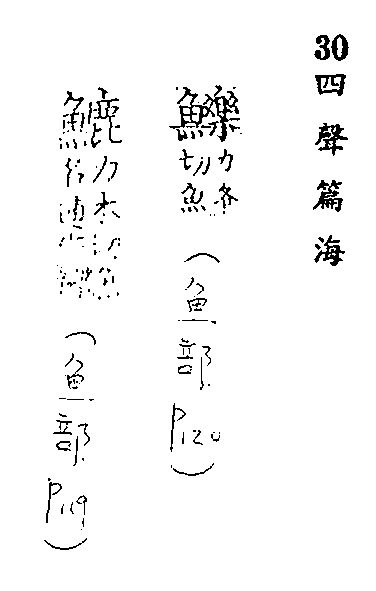 30 四聲篇海
鱳 力各切魚 (魚部 P120)
力木切魚名 (魚部 P119)